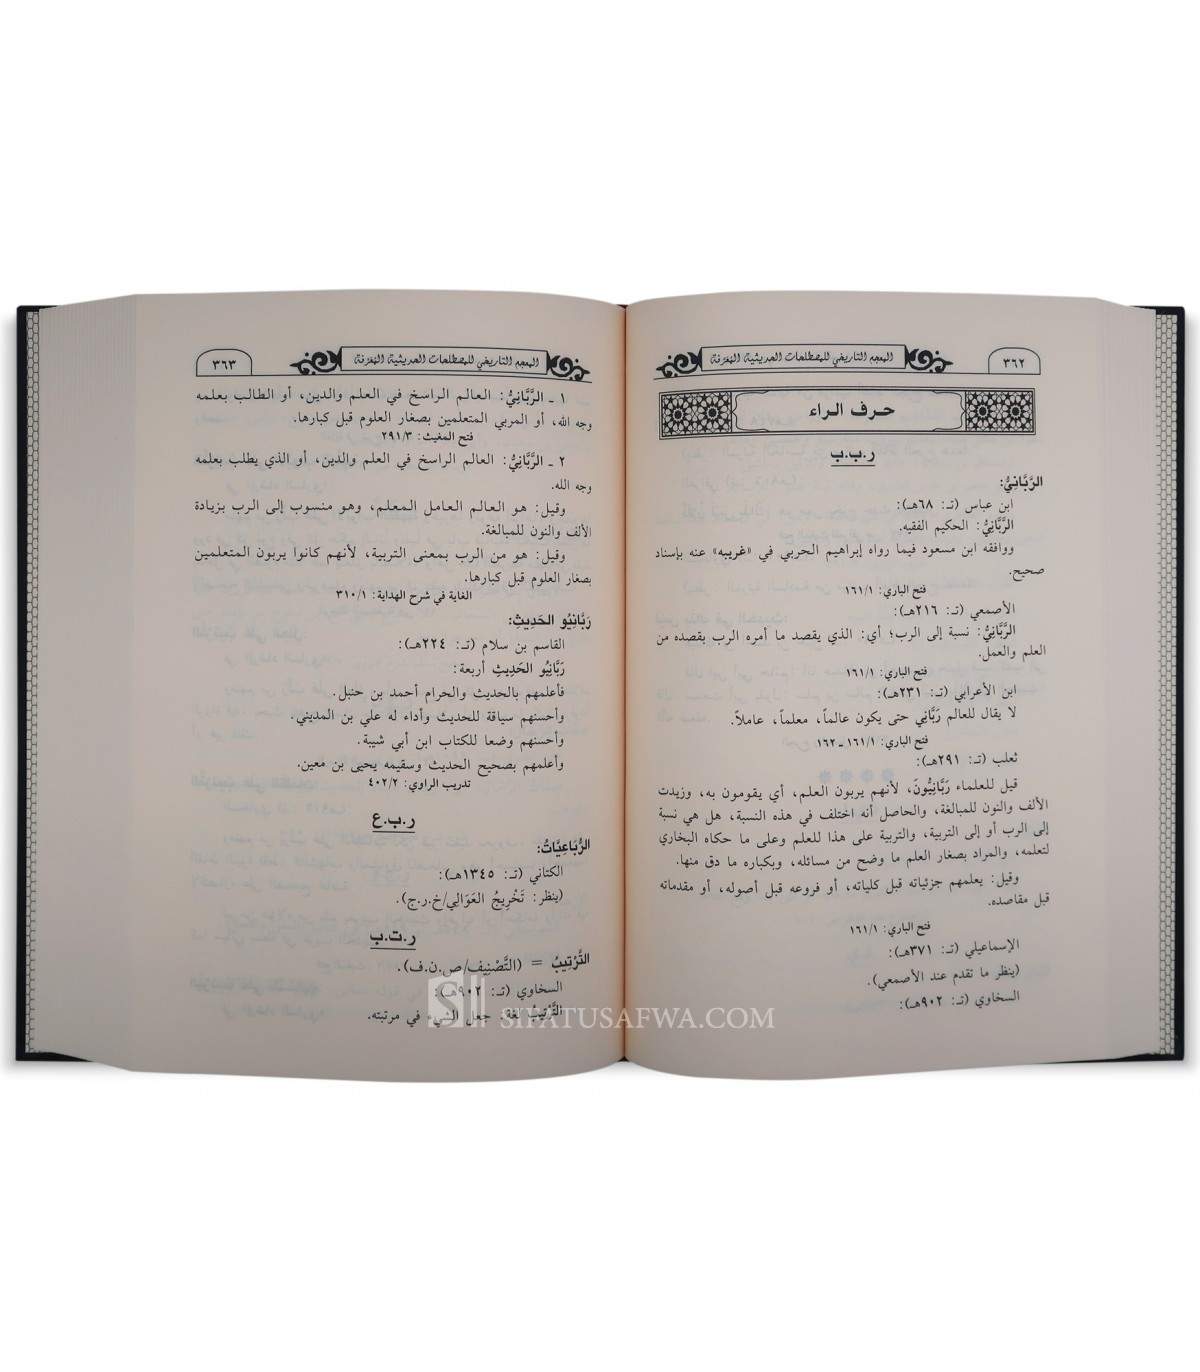 ٣٦٢
المعجم التاريخي للمصطلحات الحديثية المعرفة
حرف الراء
ر.ب.ب
الرَّبَّانِيُّ:
ابن عباس (تـ: ٦٨هـ):
الرَّبَّانِيُّ: الحكيم الفقيه.
ووافقه ابن مسعود فيما رواه إبراهيم الحربي في «غريبه» عنه بإسناد
صحيح.
فتح الباري: ١٦١/١
الأصمعي (تـ: ٢١٦هـ):
الرَّبَّانِيُّ: نسبة إلى الرب؛ أي: الذي يقصد ما أمره الرب بقصده من
العلم والعمل.
فتح الباري: ١٦١/١
ابن الأعرابي (تـ: ٢٣١هـ):
لا يقال للعالم رَبَّانِي حتى يكون عالماً، معلماً، عاملاً.
فتح الباري: ١٦١/١ ـ ١٦٢
ثعلب (تـ: ٢٩١هـ):
قيل للعلماء رَبَّانِيُّونَ، لأنهم يربون العلم، أي يقومون به، وزيدت
الألف والنون للمبالغة، والحاصل أنه اختلف في هذه النسبة، هل هي نسبة
إلى الرب أو إلى التربية، والتربية على هذا للعلم وعلى ما حكاه البخاري
لتعلمه، والمراد بصغار العلم ما وضح من مسائله، وبكباره ما دق منها.
وقيل: يعلمهم جزئياته قبل كلياته، أو فروعه قبل أصوله، أو مقدماته
قبل مقاصده.
فتح الباري: ١٦١/١
الإسماعيلي (تـ: ٣٧١هـ):
(ينظر ما تقدم عند الأصمعي).
السخاوي (تـ: ٩٠٢هـ):
المعجم التاريخي للمصطلحات الحديثية المعرفة
٣٦٣
١ ـ الرَّبَّانِيُّ: العالم الراسخ في العلم والدين، أو الطالب بعلمه
وجه الله، أو المربي المتعلمين بصغار العلوم قبل كبارها.
فتح المغيث: ٢٩١/٣
٢ ـ الرَّبَّانِيُّ: العالم الراسخ في العلم والدين، أو الذي يطلب بعلمه
وجه الله.
وقيل: هو العالم العامل المعلم، وهو منسوب إلى الرب بزيادة
الألف والنون للمبالغة.
وقيل: هو من الرب بمعنى التربية، لأنهم كانوا يربون المتعلمين
بصغار العلوم قبل كبارها.
الغاية في شرح الهداية: ٣١٠/١
رَبَّانِيُّو الحَدِيثِ:
القاسم بن سلام (تـ: ٢٢٤هـ):
رَبَّانِيُّو الحَدِيثِ أربعة:
فأعلمهم بالحديث والحرام أحمد بن حنبل.
وأحسنهم سياقة للحديث وأداء له علي بن المديني.
وأحسنهم وضعا للكتاب ابن أبي شيبة.
وأعلمهم بصحيح الحديث وسقيمه يحيى بن معين.
تدريب الراوي: ٤٠٢/٢
ر.ب.ع
الرُّبَاعِيَّاتُ:
الكتاني (تـ: ١٣٤٥هـ):
(ينظر: تَخْرِيجُ العَوَالِي/خ.ر.ج).
ر.ت.ب
التَّرْتِيبُ = (التَّصْنِيف/ص.ن.ف).
السخاوي (تـ: ٩٠٢هـ):
التَّرْتِيبُ لغة: جعل الشيء في مرتبته.
SIFATUSAFWA.COM